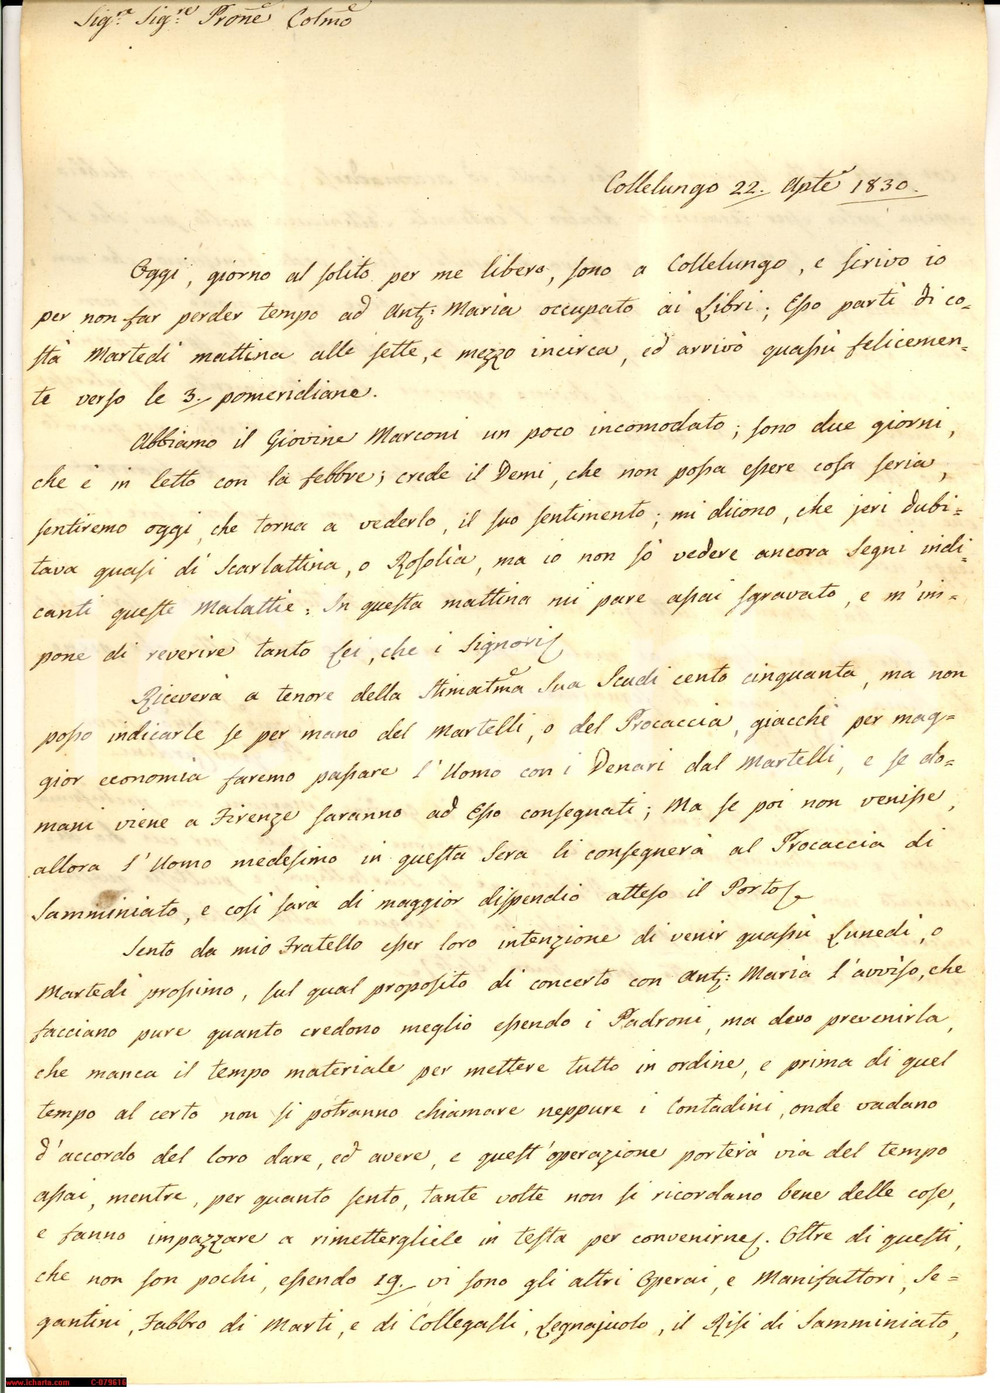 Sig.ra Sig.re Prone Colmo
Collelungo 22. Apte 1830.
Oggi, giorno al solito per me libero, sono a Collelungo, e scrivo io
per non far perder tempo ad Ant:° Maria occupato ai Libri; Esso partì di co=
stà Martedì mattina alle sette, e mezzo incirca, ed arrivò quassù felicemen=
te verso le 3. pomeridiane.
Abbiamo il Giovine Marconi un poco incomodato; sono due giorni,
che è in letto con la febbre; crede il Demi, che non possa essere cosa seria,
sentiremo oggi, che torna a vederlo, il suo sentimento; mi dicono, che jeri dubi=
tava quasi di Scarlattina, o Rosolìa, ma io non sò vedere ancora Segni indi=
canti queste Malattie: In questa mattina mi pare assai sgravato, e m'im=
pone di reverire tanto Lei, che i Signori
Riceverà a tenore della Stimatma Sua Scudi cento cinquanta, ma non
posso indicarle se per mano del Martelli, o del Procaccia, giacchè per mag=
gior economia faremo passare l'Uomo con i Denari dal Martelli, e se do=
mani viene a Firenze saranno ad Esso consegnati; Ma se poi non venisse,
allora l'Uomo medesimo in questa Sera li consegnerà al Procaccia di
Samminiato, e così sarà di maggior dispendio atteso il Porto
Sento da mio Fratello esser loro intenzione di venir quassù Lunedì, o
Martedì prossimo, sul qual proposito di concerto con Ant:° Maria l'avviso, che
facciano pure quanto credono meglio essendo i Padroni, ma devo prevenirla,
che manca il tempo materiale per mettere tutto in ordine, e prima di quel
tempo al certo non si potranno chiamare neppure i Contadini, onde vadano
d'accordo del loro dare, ed avere, e quest'operazione porterà via del tempo
assai, mentre, per quanto sento, tante volte non si ricordano bene delle cose,
e fanno impazzare a rimettergliele in testa per convenirne. Oltre di questi,
che non son pochi, essendo 19. vi sono gli altri Operai, e Manifattori, Se=
gantini, Fabbro di Marti, e di Collegalli, Legnajuolo, il Risi di Samminiato,
www.icharta.com C-079616